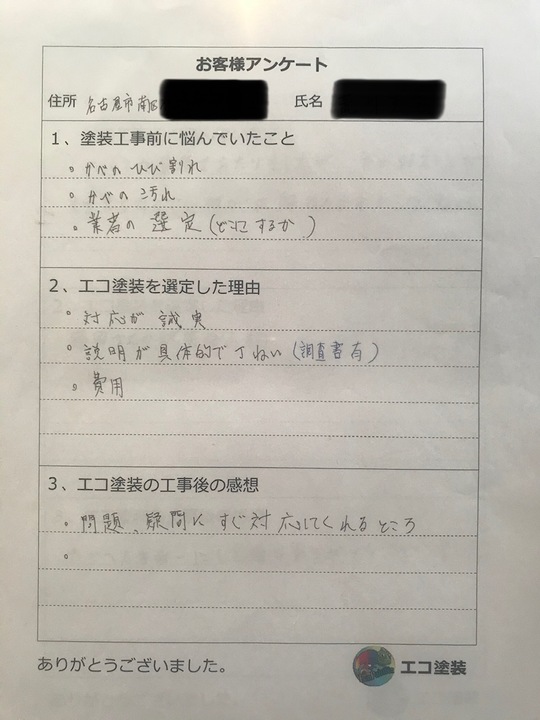 お客様アンケート
住所 名古屋市南区 氏名
1、塗装工事前に悩んでいたこと
。かべの ひび割れ
。かべの 汚れ
。業者の 選定(どこにするか)
2、エコ塗装を選定した理由
。対応が 誠実
。説明が具体的で丁ねい(調査書有)
。費用
3、エコ塗装の工事後の感想
。問題、疑問に すぐ対応してくれるところ
。
ありがとうございました。
エコ塗装